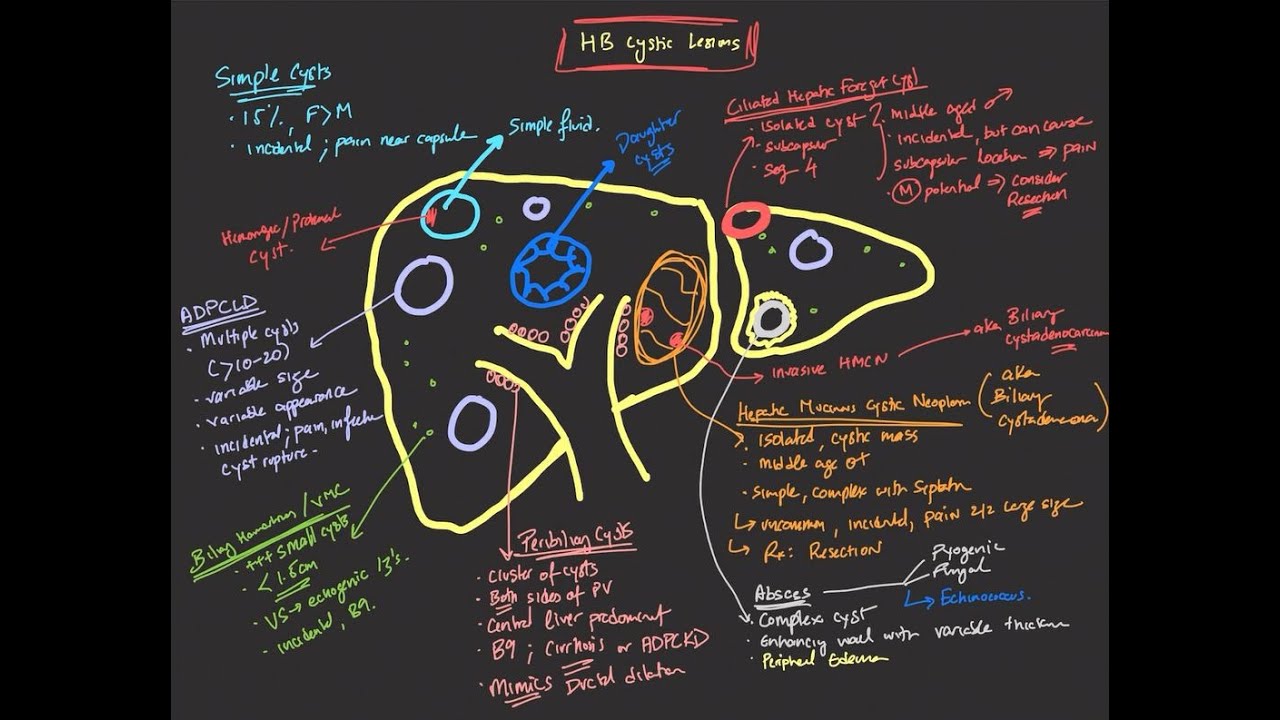 HB Cystic Lesions
Simple Cysts
· 15%, F>M
· incidental ; pain near capsule
Simple fluid.
Daughter
cysts
Ciliated Hepatic Foregut Cyst
· isolated cyst
· subcapsular
· seg 4
· middle aged ♂
· incidental, but can cause
subcapsular location ⇒ pain
· M potential ⇒ consider
Resection
Hemorragic/Protienal
cyst.
ADPCLD
· Multiple cysts
(>10-20)
· variable size
· variable appearance
· incidental; pain, infection
cyst rupture.
aka Biliary
cystadenocarcinoma
invasive HMCN
Hepatic Mucinous Cystic Neoplasm
(aka
Biliary
cystadenoma)
· isolated, cystic mass
· middle age
· simple, complex with septation
↳ uncommon, incidental, pain 2/2 large size
↳ Rx: Resection
Biliary Hamartomas / VMC
· +++ small cysts
· < 1.5cm
· VS → echogenic
· incidental, B9.
Peribiliary Cysts
· Cluster of cysts
· Both sides of PV
· Central liver predominant
· B9 ; Cirrhosis or ADPCKD
· Mimics Ductal dilation
Absces
Pyogenic
Fungal
↳ Echinococcus.
· Complex cyst
· Enhancing wall with variable thickness
· Peripheral Edema